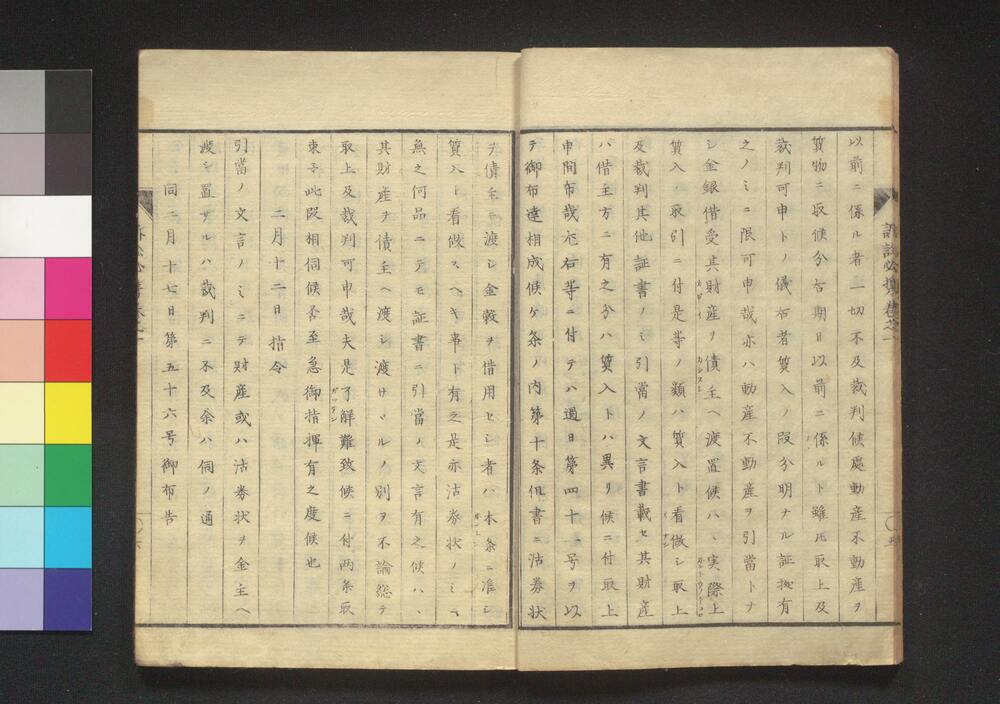 訴訟必携巻之一
以前ニ係ル者一切不及裁判候處動産不動産ヲ
質物ニ取候分右期日以前ニ係ルト雖𪜈取上及
裁判可申トノ儀右者質入ノ段分明ナル証拠有
之ノミニ限可申哉亦ハ動産不動産ヲ引當トナ
シ金銀借受其財産ヲ債主ヘ渡置候ハヽ実際上
質入ノ取引ニ付是等ノ類ハ質入ト看做シ取上
及裁判其他証書ノミ引當ノ文言書載セ其財産
ハ借主方ニ有之分ハ質入トハ異リ候ニ付取上
申間布哉尤右等ニ付テハ過日第四十一号ヲ以
テ御布達相成候ケ条ノ内第十条但書ニ沽券状
ヲ債主ニ渡シ金穀ヲ借用セシ者ハ本条ニ准シ
質入ト看做スヘキ事ト有之是亦沽券状ノミニ
無之何品ニテモ証書ニ引當ノ文言有之候ハヽ
其財産ヲ債主ヘ渡シ渡サヽルノ別ヲ不論総テ
取上及裁判可申哉夫是了解難致候ニ付両条取
束子此段相伺候条至急御指揮有之度候也
二月十二日指令
引當ノ文言ノミニテ財産或ハ沽券状ヲ金主ヘ
渡シ置サルハ裁判ニ不及余ハ伺ノ通
同二月十七日第五十六号御布告